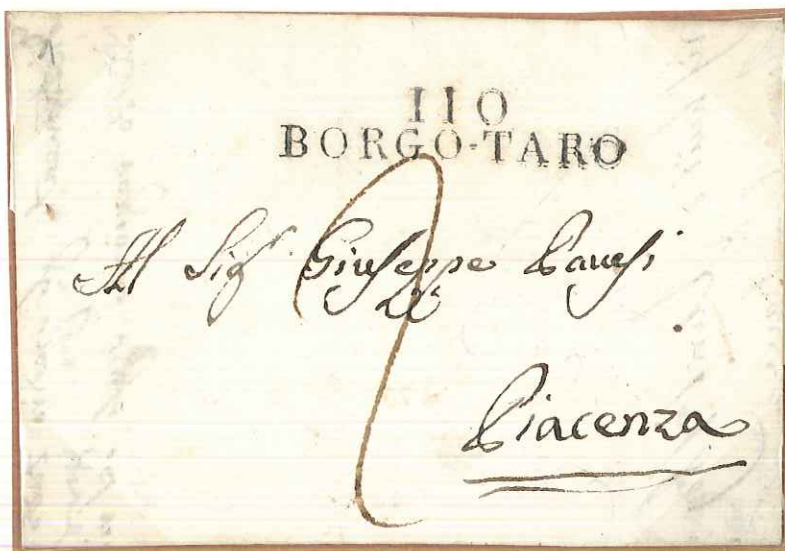 110
BORGO-TARO
Al Sigr Giuseppe Pavesi
Piacenza